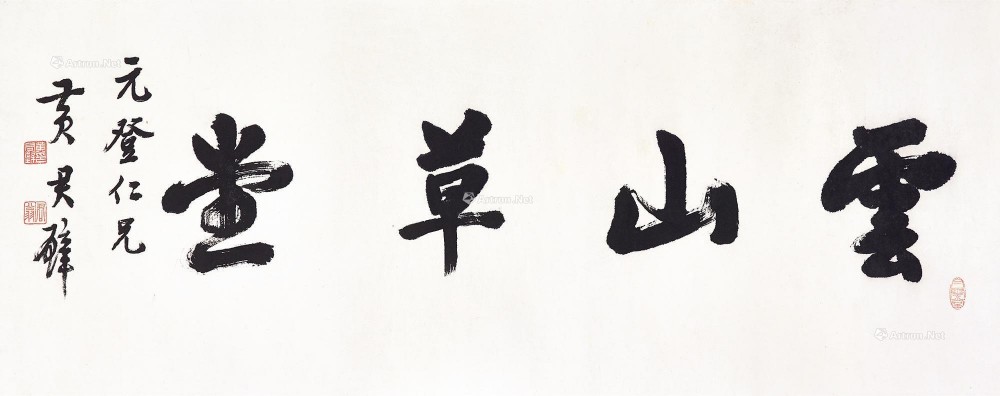 雲山草堂
元登仁兄
黃君璧
Artron.Net
Artron.Net
Artron.Net